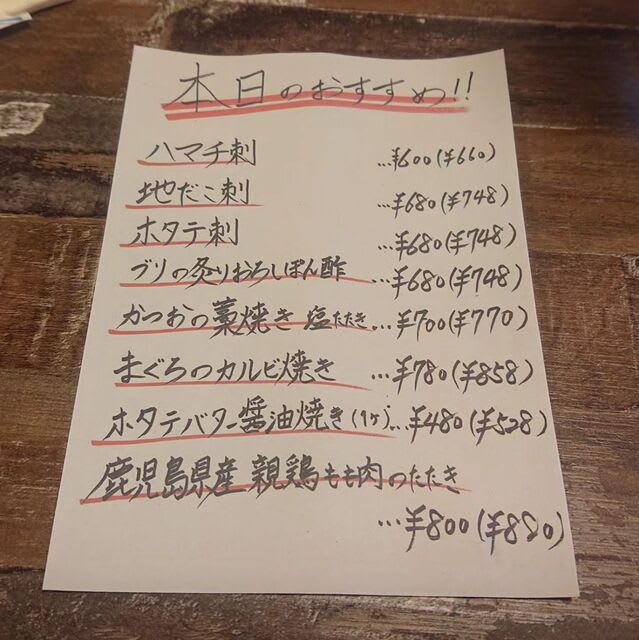 本日のおすすめ!!
ハマチ刺 …¥600(¥660)
地だこ刺 …¥680(¥748)
ホタテ刺 …¥680(¥748)
ブリの炙りおろしぽん酢 …¥680(¥748)
かつおの藁焼き 塩たたき…¥700(¥770)
まぐろのカルビ焼き …¥780(¥858)
ホタテバター醤油焼き(1ヶ)…¥480(¥528)
鹿児島県産 親鶏もも肉のたたき
…¥800(¥880)